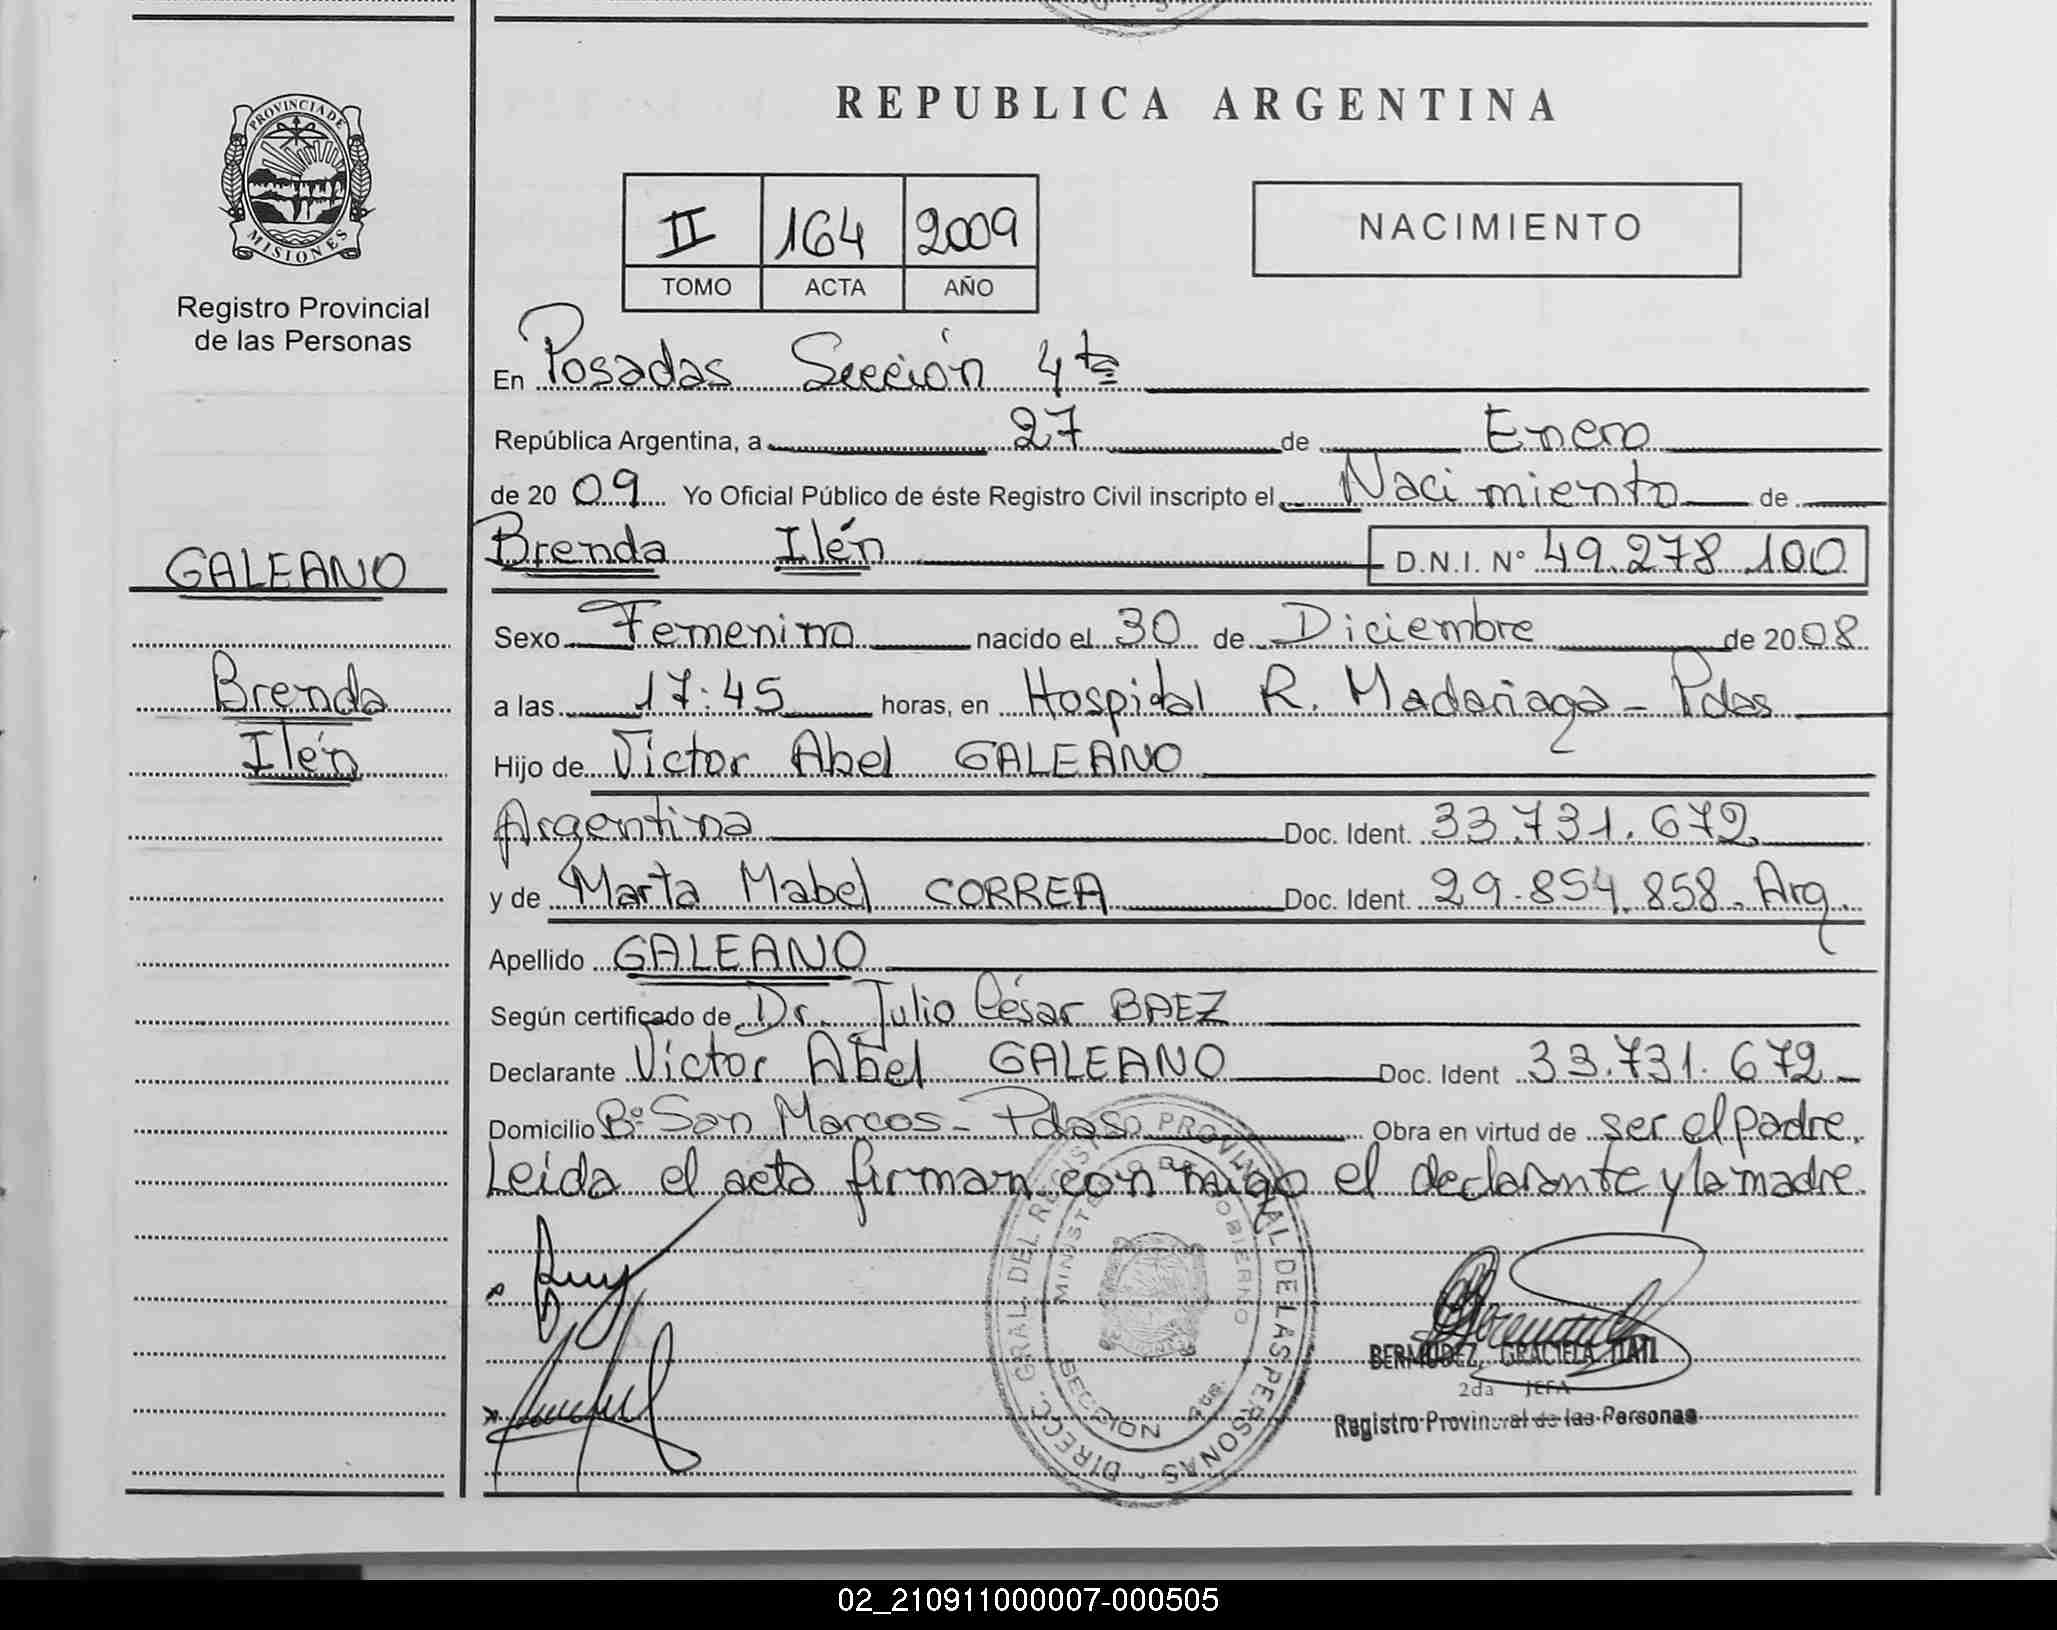 REPUBLICA ARGENTINA
PROVINCIA DE
MISIONES
Registro Provincial
de las Personas
II 164 2009
TOMO ACTA AÑO
NACIMIENTO
En Posadas Sección 4ta
República Argentina, a 27 de Enero
de 2009 Yo Oficial Público de éste Registro Civil inscripto el Nacimiento de
GALEANO
Brenda Ilén D.N.I. N° 49.278.100
Sexo Femenino nacido el 30 de Diciembre de 2008
Brenda
a las 17:45 horas, en Hospital R. Madariaga - Pdas
Ilén
Hijo de Victor Abel GALEANO
Argentina Doc. Ident. 33.731.672
y de Marta Mabel CORREA Doc. Ident. 29.854.858. Arg.
Apellido GALEANO
Según certificado de Dr. Julio César BAEZ
Declarante Victor Abel GALEANO Doc. Ident 33.731.672
Domicilio B° San Marcos - Pdas Obra en virtud de ser el padre.
Leida el acta firman con migo el declarante y la madre.
DIRECC. GRAL. DEL REGISTRO PROVINCIAL DE LAS PERSONAS
MINISTERIO DE GOBIERNO
SECCION 4ta.
BERMUDEZ, GRACIELA
2da JEFA
Registro Provincial de las Personas
02_210911000007-000505